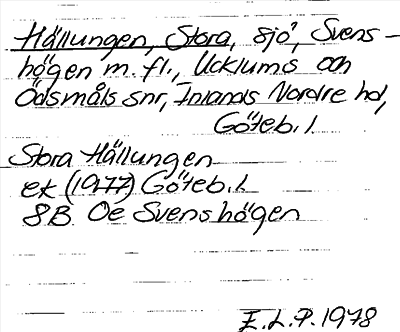 Hällungen, Stora, sjö, Svens-
högen m. fl., Ucklums och
Ödsmåls snr, Inlands Nordre hd,
Göteb. l.
Stora Hällungen
ek (1977) Göteb. l.
8B Öe Svenshögen
E.L.P. 1978